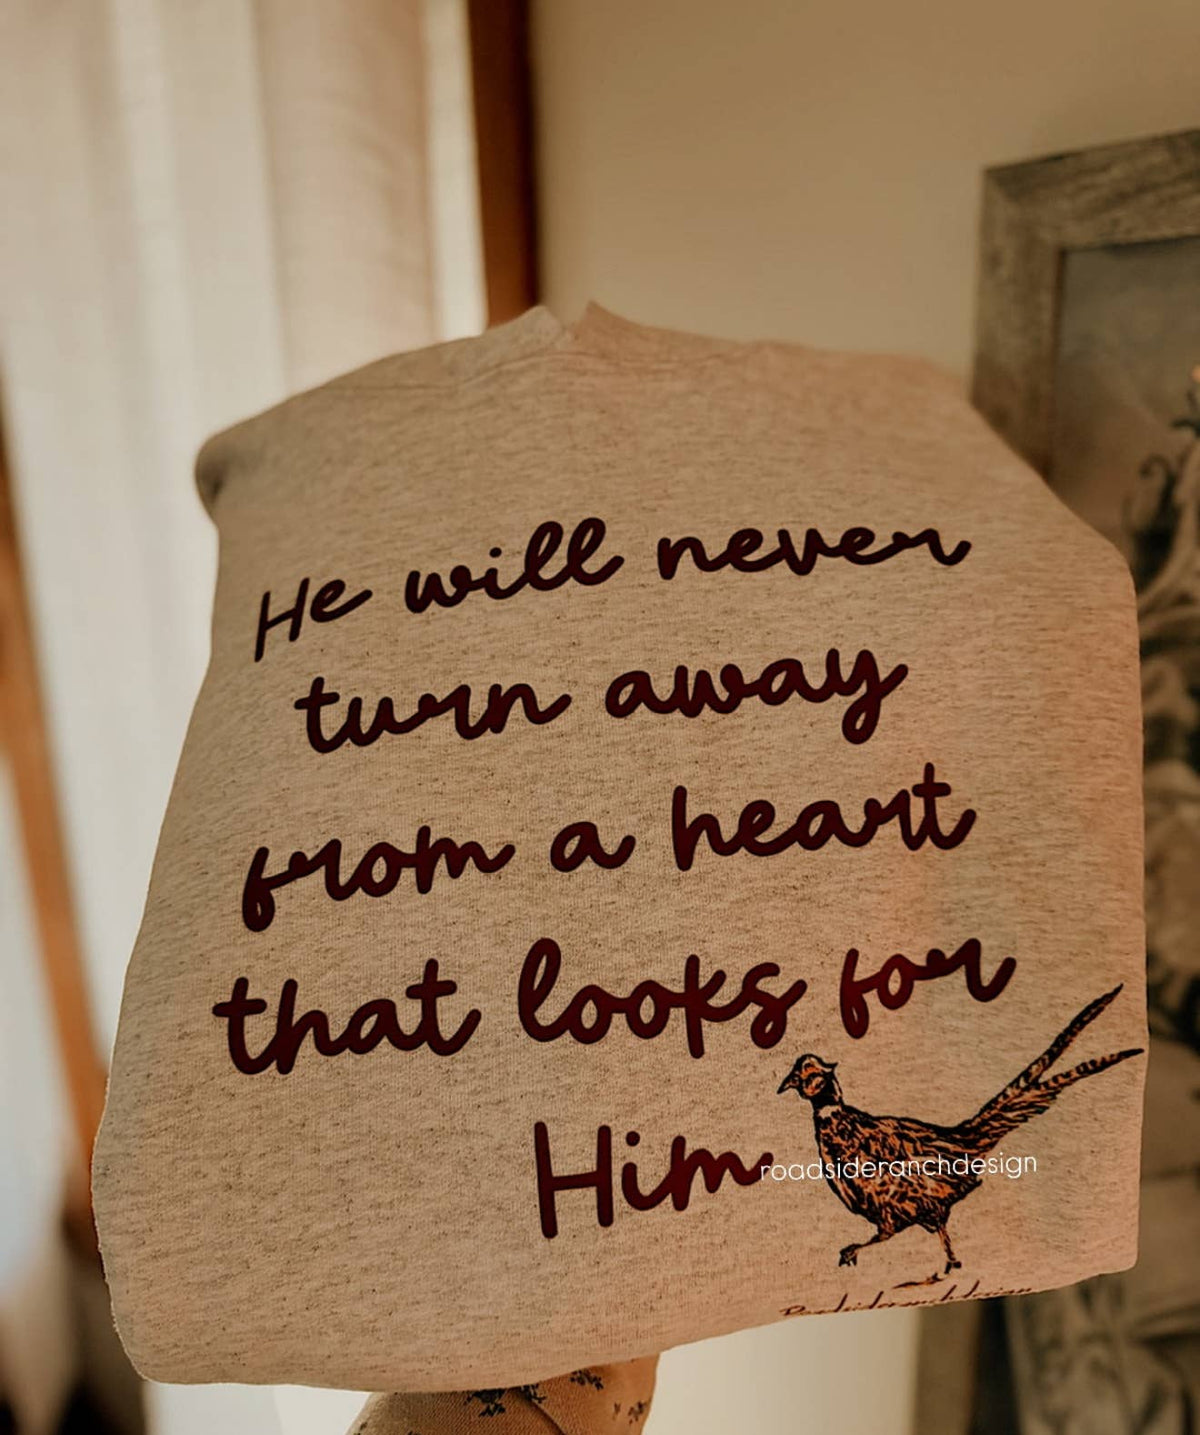 He will never
turn away
from a heart
that looks for
Him
roadsideranchdesign
Roadsideranchdesign